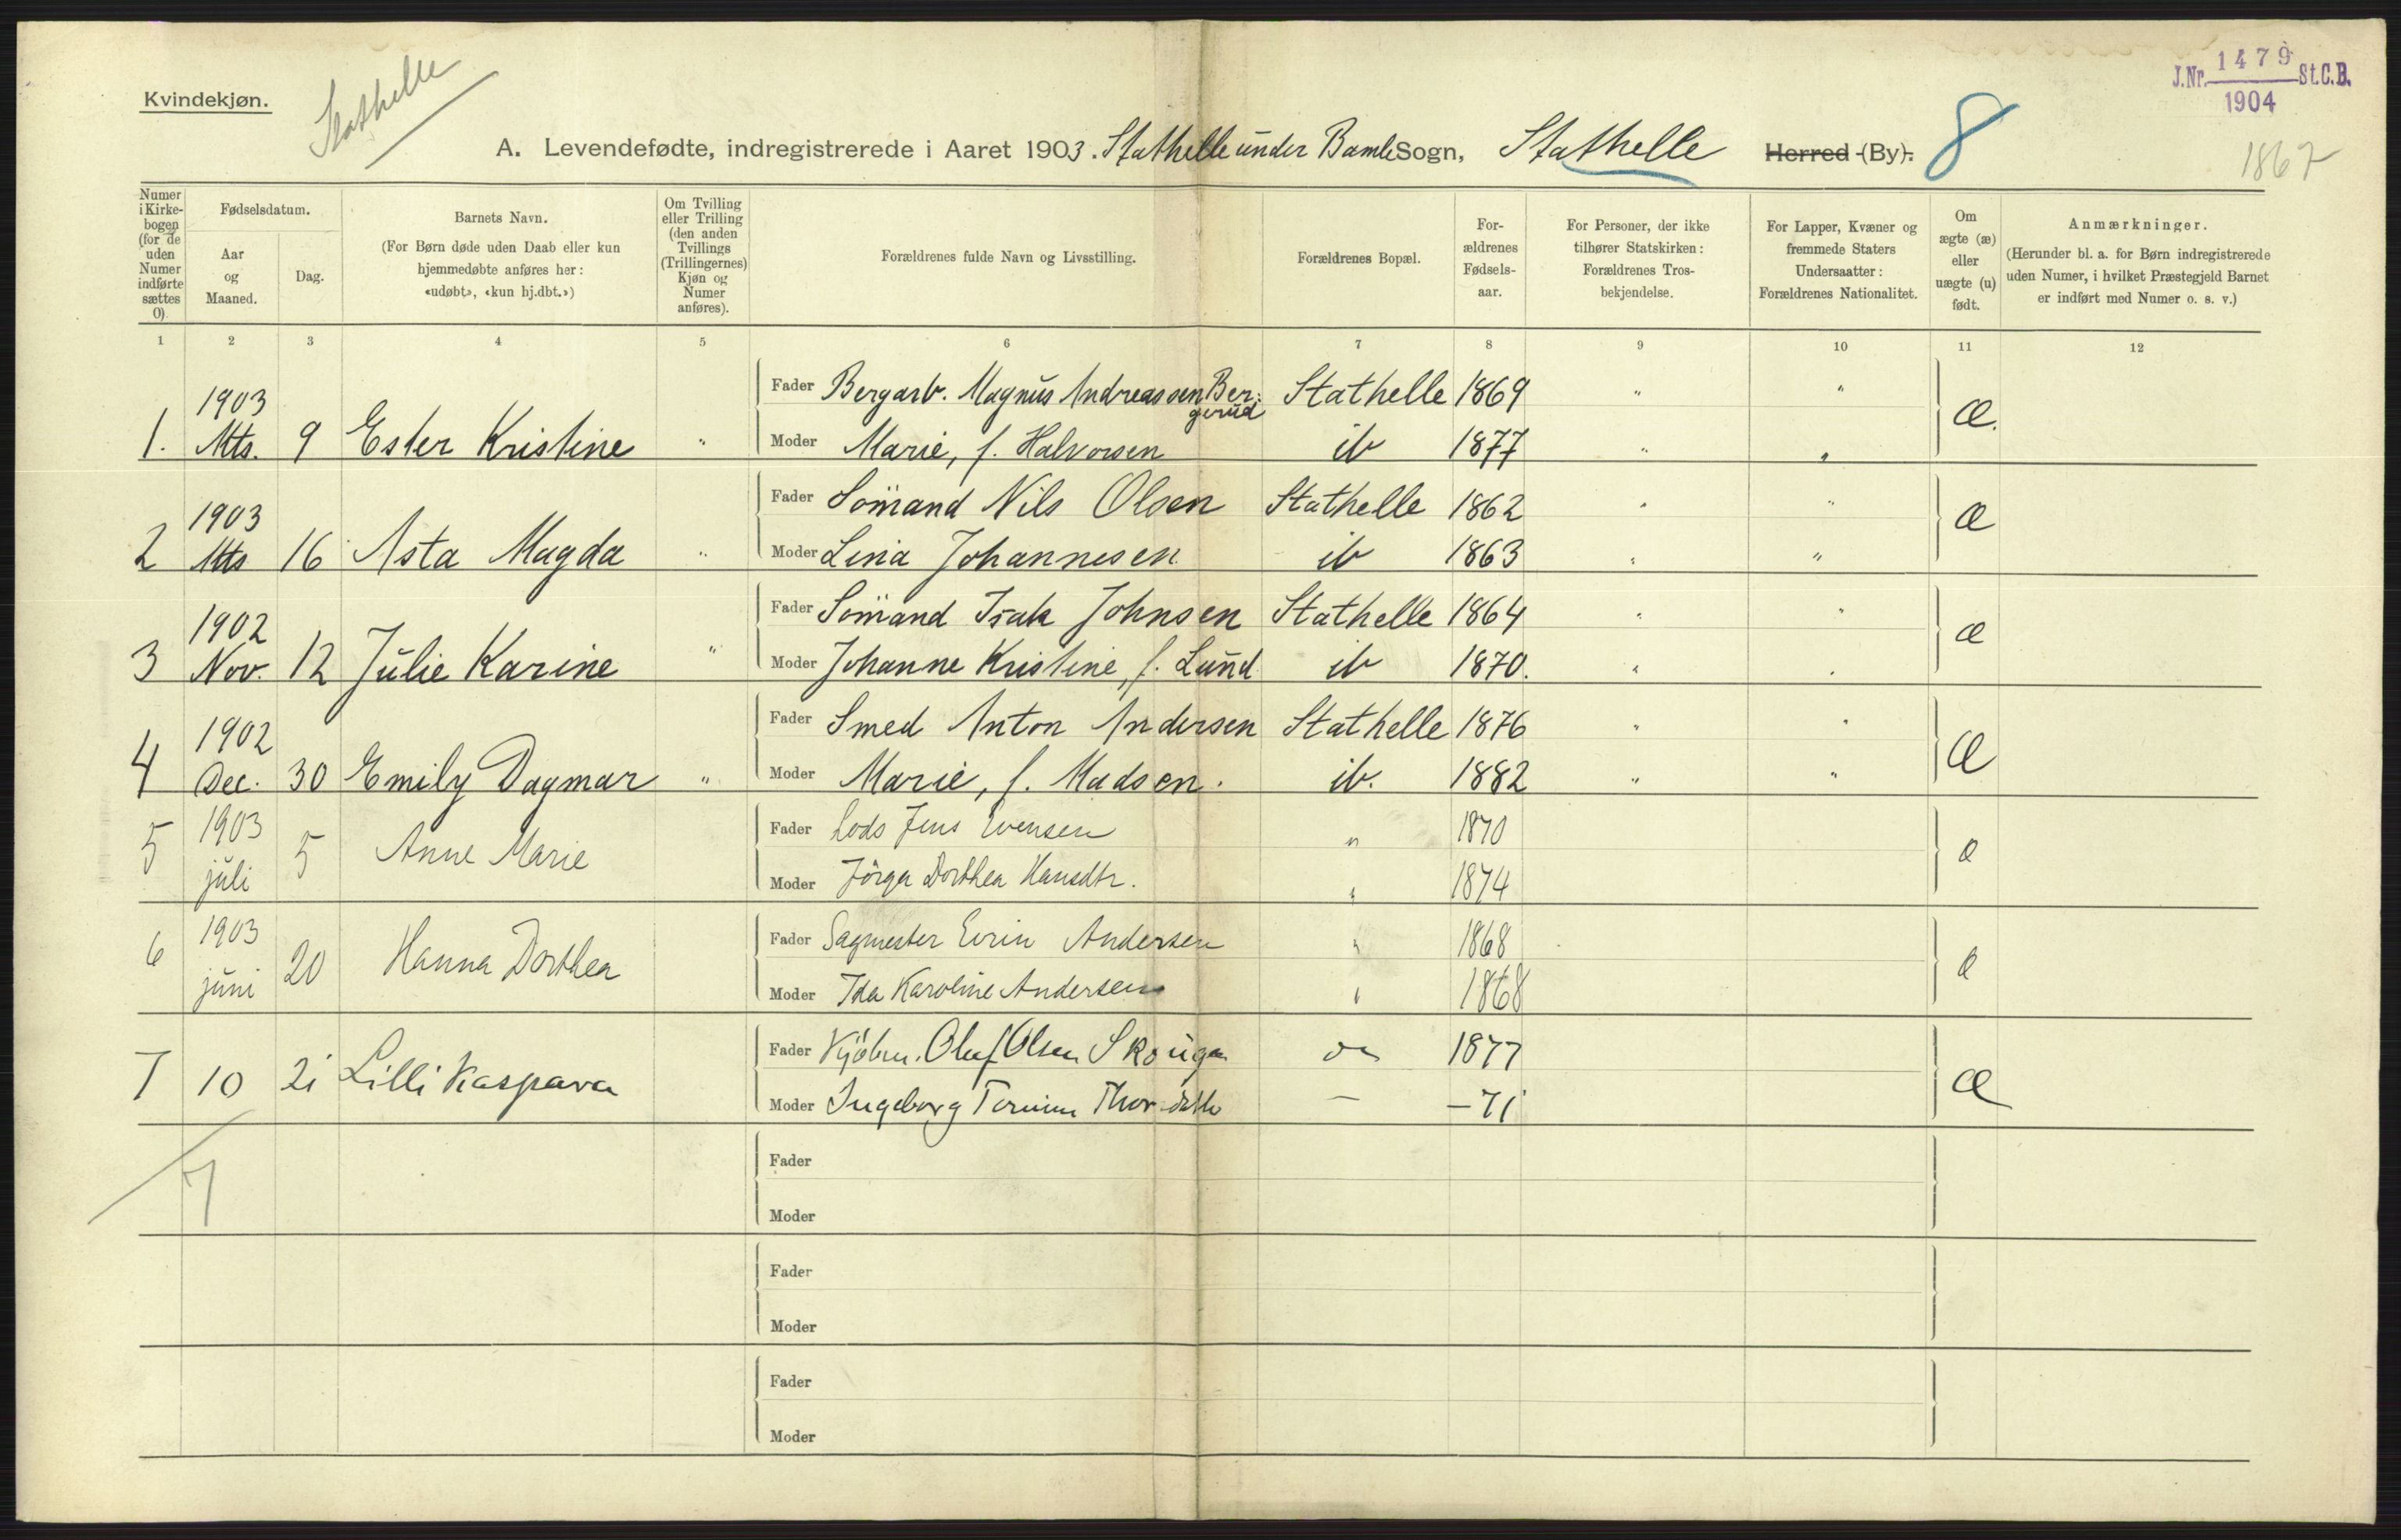 Kvindekjøn.
Stathelle
J.Nr. 1479 St.C.B.
1904
1867
A. Levendefødte, indregistrerede i Aaret 1903. Stathelle under Bamle Sogn, Stathelle Herred (By). 8
Numer i Kirkebogen (for de uden Numer indførte sættes 0).
Fødselsdatum.
Aar og Maaned.
Dag.
Barnets Navn.
(For Børn døde uden Daab eller kun hjemmedøbte anføres her: «udøbt», «kun hj.dbt.»)
Om Tvilling eller Trilling (den anden Tvillings (Trillingernes) Kjøn og Numer anføres).
Forældrenes fulde Navn og Livsstilling.
Forældrenes Bopæl.
Forældrenes Fødselsaar.
For Personer, der ikke tilhører Statskirken: Forældrenes Trosbekjendelse.
For Lapper, Kvæner og fremmede Staters Undersaatter: Forældrenes Nationalitet.
Om ægte (æ) eller uægte (u) født.
Anmærkninger.
(Herunder bl. a. for Børn indregistrerede uden Numer, i hvilket Præstegjeld Barnet er indført med Numer o. s. v.)
1 2 3 4 5 6 7 8 9 10 11 12
1903 Fader Bergarb. Magnus Andreassen Bergerud Stathelle 1869 " " æ.
1. Mts. 9 Ester Kristine " Moder Marie, f. Halvorsen ib 1877 " "
1903 Fader Sömand Nils Olsen Stathelle 1862 " " æ
2 Mts 16 Asta Magda " Moder Lina Johannesen ib 1863 " "
1902 Fader Sömand Isak Johnsen Stathelle 1864 " " æ
3 Nov. 12 Julie Karine " Moder Johanne Kristine, f. Lund ib 1870. " "
1902 Fader Smed Anton Andersen Stathelle 1876 " " æ
4 Dec. 30 Emily Dagmar " Moder Marie, f. Madsen. ib. 1882 " "
5 1903 5 Anne Marie Fader Lods Jens Evensen " 1870 æ
juli Moder Jörga Dorthea Hansdtr. " 1874
6 1903 20 Hanna Dorthea Fader Sagmester Andersen " 1868 æ
juni Moder Ida Karoline Andersen " 1868
7 10 21 Lilli Kaspara Fader Oluf Olsen Skougen 1877 æ
Moder Ingeborg — – 71
7
Fader
Moder
Fader
Moder
Fader
Moder